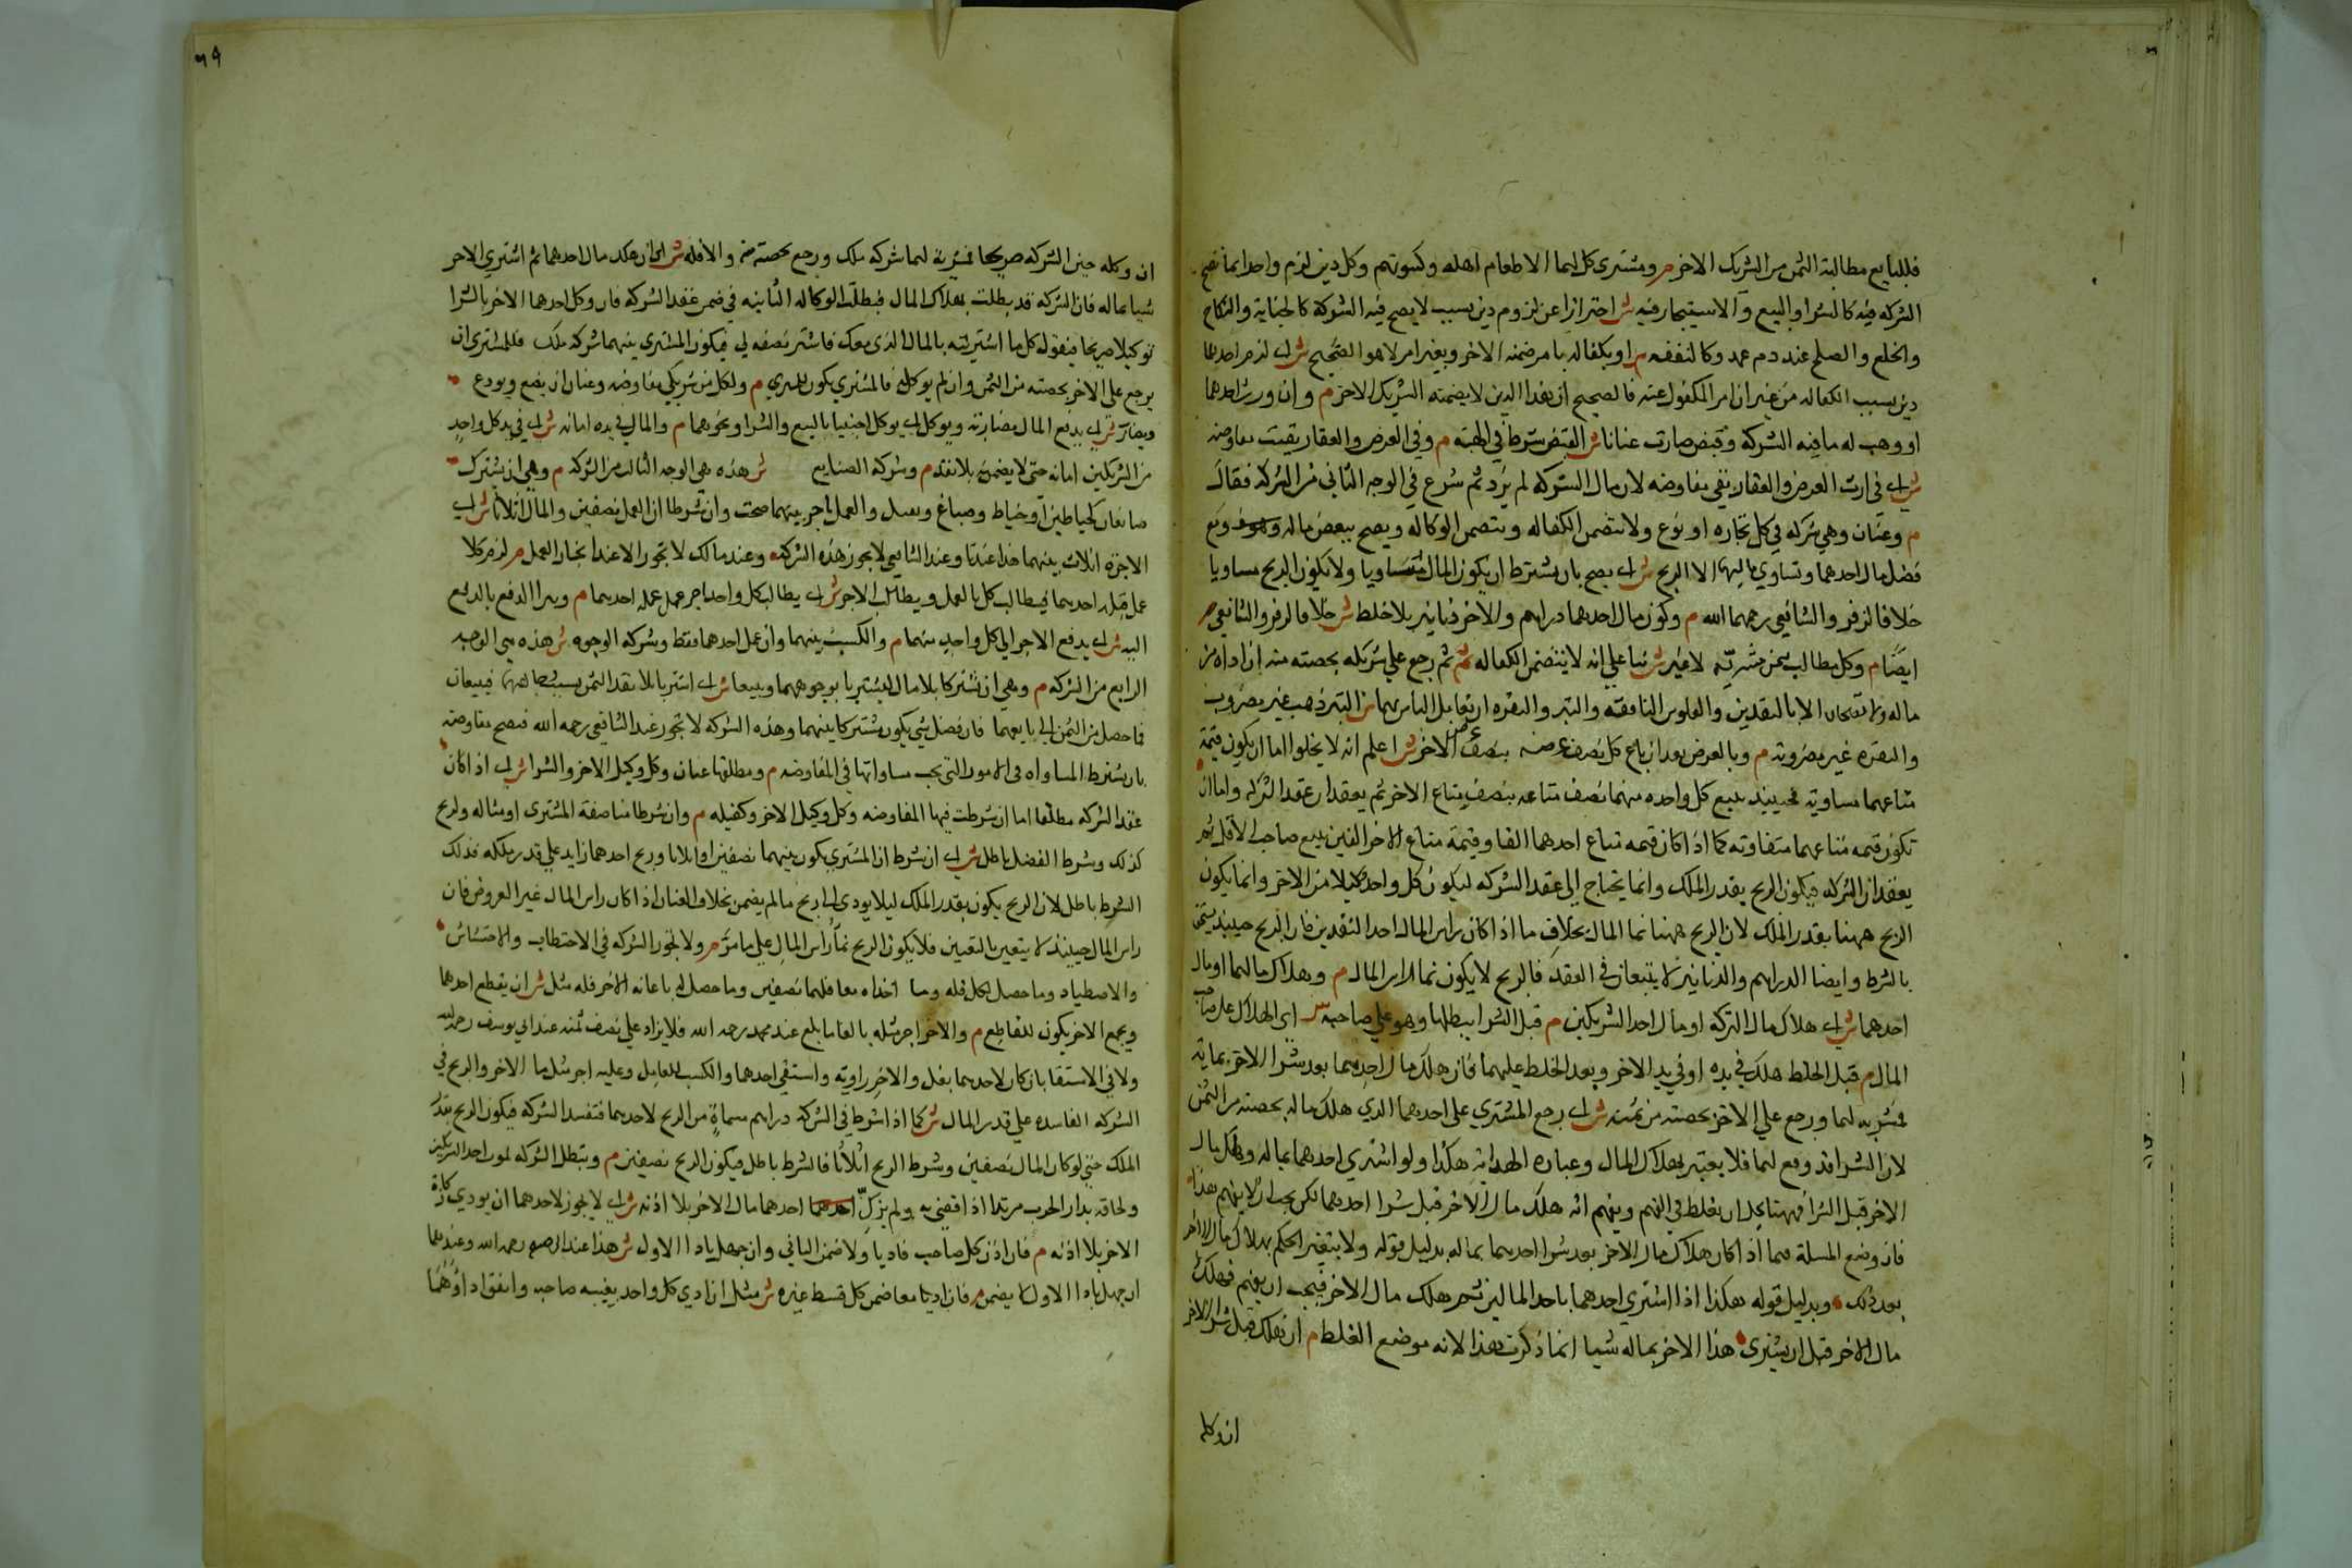 فللبايع مطالبة الثمن من الشريك الاخر م ومشترى كل لهما الا طعام اهله وكسوتهم وكل دين لزم واحدا بما تصح
الشركة فيه كالشرا والبيع والاستيجار فيه ش احترازا عن لزوم دين بسبب لا يصح فيه الشركة كالجناية والنكاح
والخلع والصلح عند دم عمد وكالنفقه م او بكفاله بامر ضمنه الاخر وبغير امر لا هو الصحيح ش اى لزم احدهما
دين بسبب الكفاله من غير ان امر المكفول عنه فالصحيح ان هذا الدين لا يضمنه الشريك الاخر م وان ورث احدهما
او وهب له ما فيه الشركه وقبض صارت عنانا ش القبض شرط في الهبة م وفي العرض والعقار بقيت مفاوضه
ش اى في ارث العرض والعقار بقي مفاوضه لان مال الشركه لم يزد ثم شرع في الوجه الثاني من الشركة فقال
م وعنان وهي شركه في كل تجاره او نوع ولا تتضمن الكفاله وتتضمن الوكاله ويصح ببعض ماله ومع
فضل مال احدهما وتساوي ماليهما لا الربح ش اى يصح بان يشترط ان يكون المال متساويا ولا يكون الربح مساويا
خلافا لزفر والشافعي رحمهما الله م وكون مال احدهما دراهم والاخر دنانير بلا خلط ش خلافا لزفر والشافعي
ايضا م وكل مطالب بثمن مشريه لا غير ش بنا على انه لا يتضمن الكفاله م ثم رجع على شريكه بحصته منه ان اداه من
ماله ولا تصحان الا بالنقدين والفلوس النافقة والتبر والنقره ان تعامل الناس بهما ش التبر ذهب غير مضروب
والنقره غير مضروبه م وبالعرض بعد ان باع كل نصف عرضه بنصف عرض الاخر ش اعلم انه لا يخلوا اما ان يكون قيمة
متاعهما مساويه فحينيذ يبيع كل واحده منهما نصف متاعه بنصف متاع الاخر ثم يعقدان عقد الشركه واما ان
تكون قيمه متاعهما متفاوته كما اذا كان قيمه متاع احدهما الفا وقيمة متاع الاخر الفين يبيع صاحب الاقل ثم
يعقدان الشركه فيكون الربح بقدر الملك وانما يحتاج الى عقد الشركه ليكون كل واحد وكيلا من الاخر وانما يكون
الربح ههنا بقدر الملك لان الربح ههنا نما المال بخلاف ما اذا كان راس المال احد النقدين فان الربح حينيذ يستحق
بالشرط وايضا الدراهم والدنانير لا يتعينان في العقد فالربح لا يكون نما لراس المال م وهلاك مالهما او مال
احدهما ش اى هلاك مال الشركة او مال احد الشريكين م قبل الشرا يبطلها وهو على صاحبه ش اى الهلاك على صاحب
المال م قبل الخلط هلك في يده او في يد الاخر وبعد الخلط عليهما فان هلك مال احدهما بعد شرا الاخر بماله
فمشريه لهما ورجع على الاخر بحصته من ثمنه ش اى رجع المشترى على احدهما الذي هلك ماله بحصته من الثمن
لان الشرا قد وقع لهما فلا يعتبر بهلاك المال وعباره الهدايه هكذا ولو اشترى احدهما بماله وهلك مال
الاخر قبل الشرا فههنا محل ان يغلط في الفهم ويفهم انه هلك مال الاخر قبل شرا احدهما لكن يجب ان لا يفهم هذا
فان وضع المسلة فيما اذا كان هلاك مال الاخر بعد شرا احدهما بماله بدليل قوله ولا يتغير الحكم بهلاك مال الاخر
بعد ذلك وبدليل قوله هكذا اذا اشترى احدهما باحد المالين ثم هلك مال الاخر فيجب ان يفهم فهلك
مال الاخر قبل ان يشترى هذا الاخر بماله شيا انما ذكرت هذا لانه موضع الغلط م ان هلك قبل شرا الاخر
ان وكله
٣٩
ان وكله حين الشركه صريحا فمشريه لهما شركه ملك ورجع بحصته منه والا فله ش اى ان هلك مال احدهما ثم اشترى الاخر
شيا بماله فان الشركه قد بطلت بهلاك المال فبطلت الوكاله الثابته في ضمن عقد الشركه فان وكل احدهما الاخر بالشرا
توكيلا صريحا فيقول كل ما اشتريته بالمال الذى معك فاشتر نصفه لي فيكون المشترى بينهما شركه ملك فللمشترى ان
يرجع على الاخر بحصته من الثمن وان لم يوكله فالمشترى يكون للمشترى م ولكل من شريكي مفاوضه وعنان ان يبضع ويودع
ويضارب ش اى يدفع المال مضاربة ويوكل اى يوكل اجنبيا بالبيع والشرا ونحوهما م والمال في يده امانه ش اى في يد كل واحد
من الشريكين امانه حتى لا يضمن بلا تعد م وشركة الصنايع ش هذه هي الوجه الثالث من الشركه م وهي ان يشترك
صانعان كخياطين او خياط وصباغ ويتقبل والعمل باجر بينهما صحت وان شرطا العمل نصفين والمال اثلاثا ش اى
الاجرة اثلاث بينهما هذا عندنا وعند الشافعي لا يجوز هذه الشركه وعند مالك لا تجوز الا عند اتحاد العمل م لزم كلا
عمل قبله احدهما فيطالب كل بالعمل ويطالب الاجر ش اى يطالب كل واحد اجر عمل عمله احدهما م ويبرا الدافع بالدفع
اليه ش اى يدفع الاجر الى كل واحد منهما م والكسب بينهما وان عمل احدهما فقط وشركه الوجوه ش هذه هي الوجه
الرابع من الشركه م وهي ان تشتركا بلا مال ليشتريا بوجوههما ويبيعا ش اى اشتريا بلا نقد الثمن بسبب وجاهتهما فيبيعان
فما حصل من الثمن الى بايعهما فان فضل شي يكون مشتركا بينهما وهذه الشركه لا تجوز عند الشافعي رحمه الله فتصح مفاوضه
بان يشترط المساواه في الامور التي يجب مساواتها في المفاوضه م ومطلقها عنان وكل وكيل الاخر والشرا ش اى اذا كان
عقد الشركه مطلقا اما ان شرطت فيها المفاوضه وكل وكيل الاخر وكفيله م وان شرطا مناصفة المشترى او مثاله ولربح
كذلك وشرط الفضل باطل ش اى ان شرط ان المشترى يكون بينهما نصفين او اثلاثا وربح احدهما زايد على قدر ملكه فذلك
الشرط باطل لان الربح يكون بقدر الملك ليلا يودى الى ربح مالم يضمن بخلاف العنان اذا كان راس المال غير العروض فان
راس المال حينيذ لا يتعين بالتعيين فلا يكون الربح نما راس المال على ما مر م ولا تجوز الشركه في الاحتطاب والاحتشاش
والاصطياد وما حصل لكل فله وما اخذاه معا فلهما نصفين وما حصل له باعانه الاخر فله مثل ش ان يقطع احدهما
ويجمع الاخر يكون للقاطع م والاخر اجر مثله بالغا ما بلغ عند محمد رحمه الله فلا يزاد على نصف ثمنه عند ابي يوسف رحمه الله
ولا في الاستقا بان كان لاحدهما بغل والاخر راويه واستقى احدهما والكسب للعامل وعليه اجر مثل ما الاخر والربح في
الشركه الفاسده على قدر المال ش كما اذا شرط في الشركه دراهم مسماة من الربح لاحدهما فتفسد الشركه فيكون الربح بقدر
الملك حتى لو كان المال نصفين وشرط الربح اثلاثا فالشرط باطل فيكون الربح نصفين م وتبطل الشركه لموت احد الشريكين
ولحاقه بدار الحرب مرتدا اذا قضى به ولم يزك احدهما مال الاخر بلا اذنه ش اى لا يجوز لاحدهما ان يودي زكاة
الاخر بلا اذنه م فان اذن كل صاحب فاديا ولا ضمن الثاني وان جهل بادا الاول ش هذا عند ابي حنيفه رحمه الله وعندهما
ان جهل بادا الاول لا يضمن م فان اديا معا ضمن كل قسط غيره ش مثل ان ادى كل واحد بغيبه صاحبه واتفق اداوهما